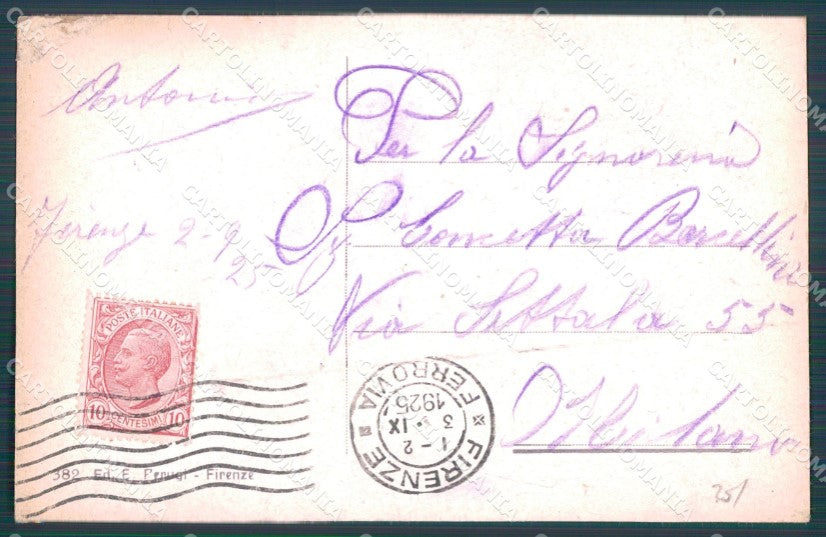 Antonio
Firenze 2-9
25
Per la Signorina
Concetta Barcellini
Via Settala 55
Milano
POSTE ITALIANE
10 CENTESIMI 10
FIRENZE
FERROVIA
1-2
3 IX
1925
382 Ed. E. Perugi - Firenze
25/
CARTOLINOMANIA